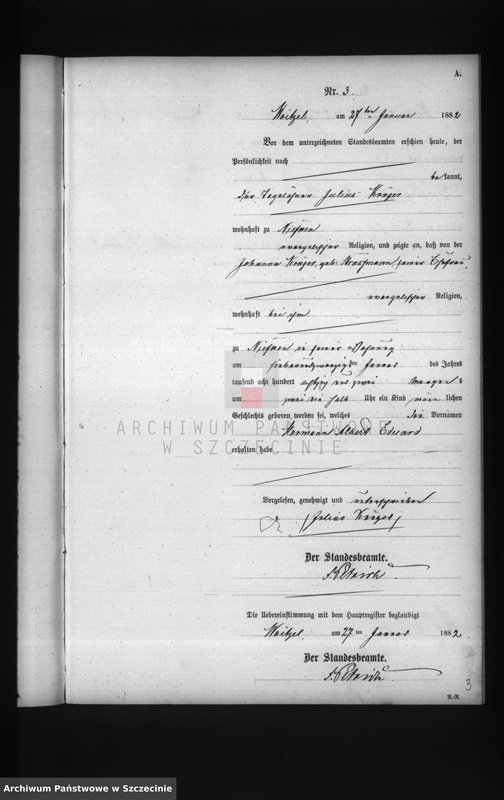 A.
Nr. 3.
Woitzel, am 27ten Januar 1882
Vor dem unterzeichneten Standesbeamten erschien heute, der
Persönlichkeit nach
be kannt,
der Tagelöhner Julius Krüger
wohnhaft zu
evangelischer Religion, und zeigte an, daß von der
Johanna Krüger, geb. seiner Ehefrau,
evangelischer Religion,
wohnhaft bei ihm
zu in seiner Wohnung
am siebenundzwanzigsten Januar des Jahres
tausend acht hundert achtzig und zwei Morgens
um zwei ein halb Uhr ein Kind männ lichen
Geschlechts geboren worden sei, welches die Vornamen
Hermann Albert Eduard
erhalten habe
Vorgelesen, genehmigt und unterschrieben
Julius Krüger
Der Standesbeamte.
Die Uebereinstimmung mit dem Hauptregister beglaubigt
Woitzel am 27ten Januar 1882.
Der Standesbeamte.
3
ARCHIWUM PAŃSTWOWE
W SZCZECINIE
Archiwum Państwowe w Szczecinie